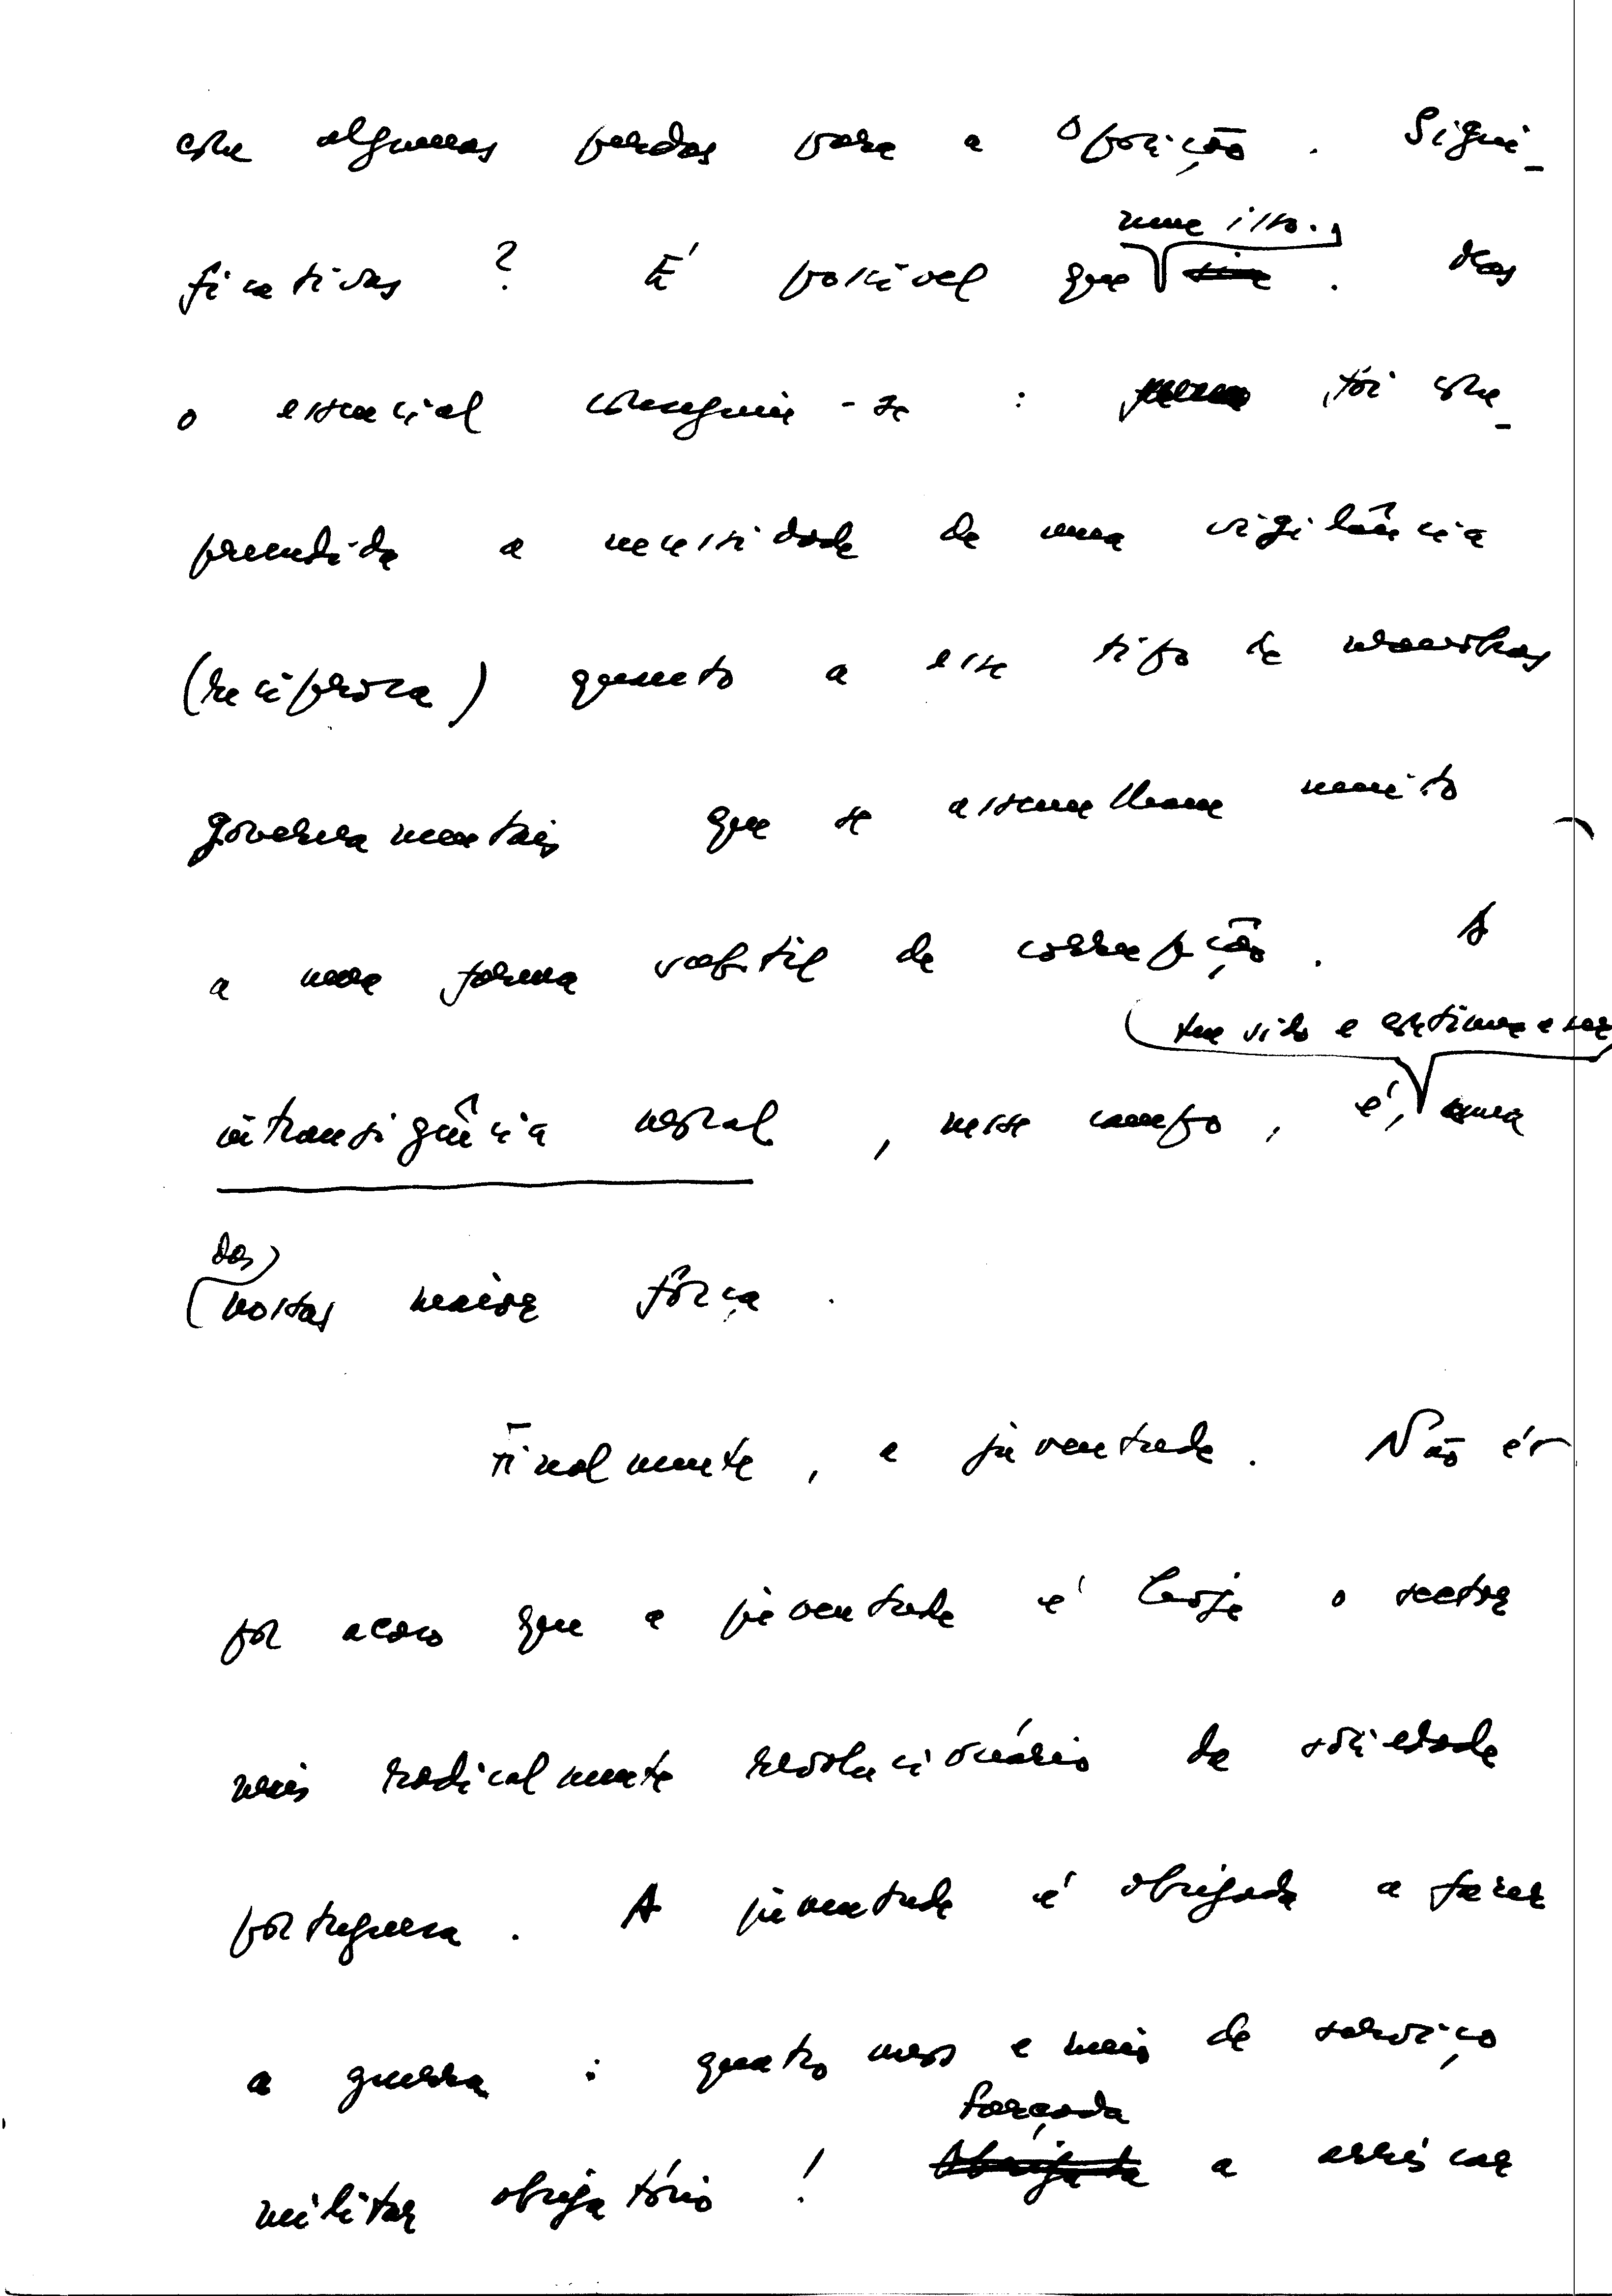 com algumas perdas para a Oposição. Signi-
num isso.
ficativas? É possível que. Mas
o essencial conseguiu-se: foi com-
preendida a necessidade de uma vigilância
(recíproca) quanto a esse tipo de manobras
governamentais que se assemelham muito
a uma forma subtil de corrupção. A
tem sido e continua a ser
intransigência moral, nesse campo, é, uma
das
nossas maior força.
Finalmente, a juventude. Não é
por acaso que a juventude é hoje o sector
mais radicalmente revolucionário da sociedade
portuguesa. A juventude é obrigada a fazer
a guerra: quatro anos e mais de serviço
forçada
militar obrigatório! Obrigada a arriscar